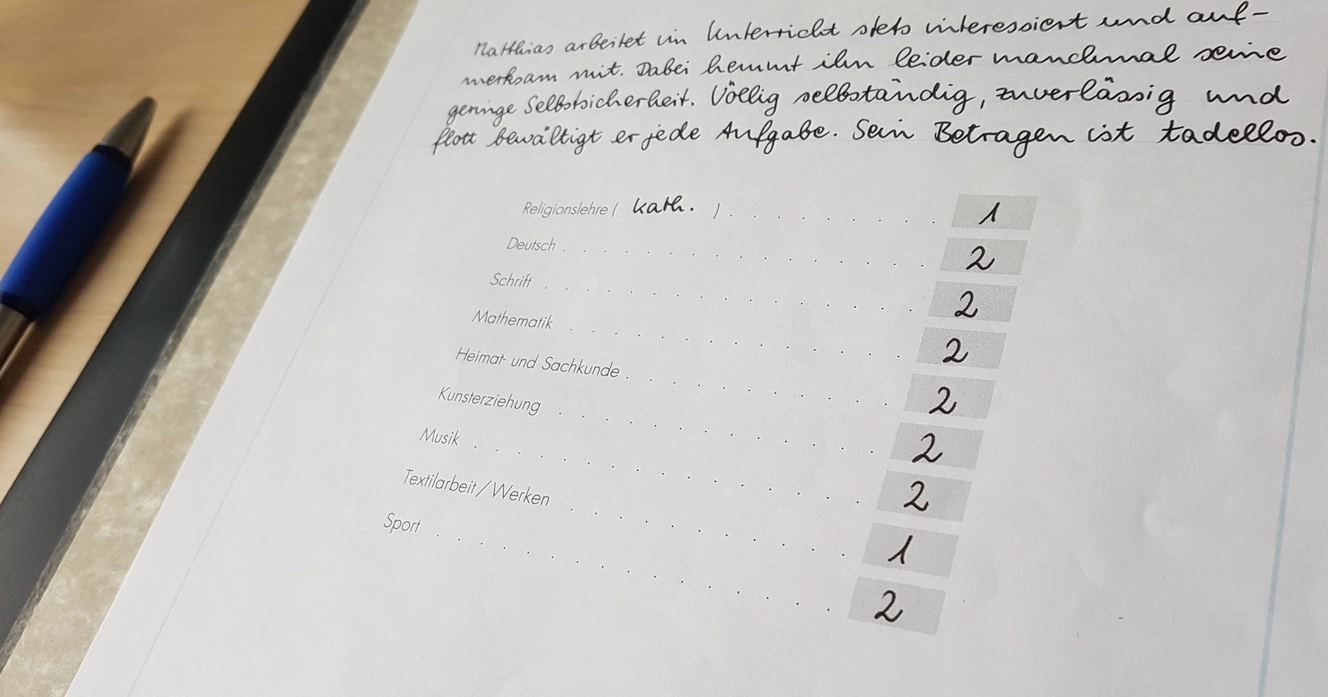 Matthias arbeitet im Unterricht stets interessiert und auf-
merksam mit. Dabei hemmt ihn leider manchmal seine
geringe Selbstsicherheit. Völlig selbständig, zuverlässig und
flott bewältigt er jede Aufgabe. Sein Betragen ist tadellos.
Religionslehre ( kath. ) . . . . . . . . . . 1
Deutsch . . . . . . . . . . . . . . 2
Schrift . . . . . . . . . . . . . . 2
Mathematik . . . . . . . . . . . . . 2
Heimat- und Sachkunde . . . . . . . . . . . 2
Kunsterziehung . . . . . . . . . . . . 2
Musik . . . . . . . . . . . . . . 2
Textilarbeit/Werken . . . . . . . . . 1
Sport . . . . . . . . . . . . . 2